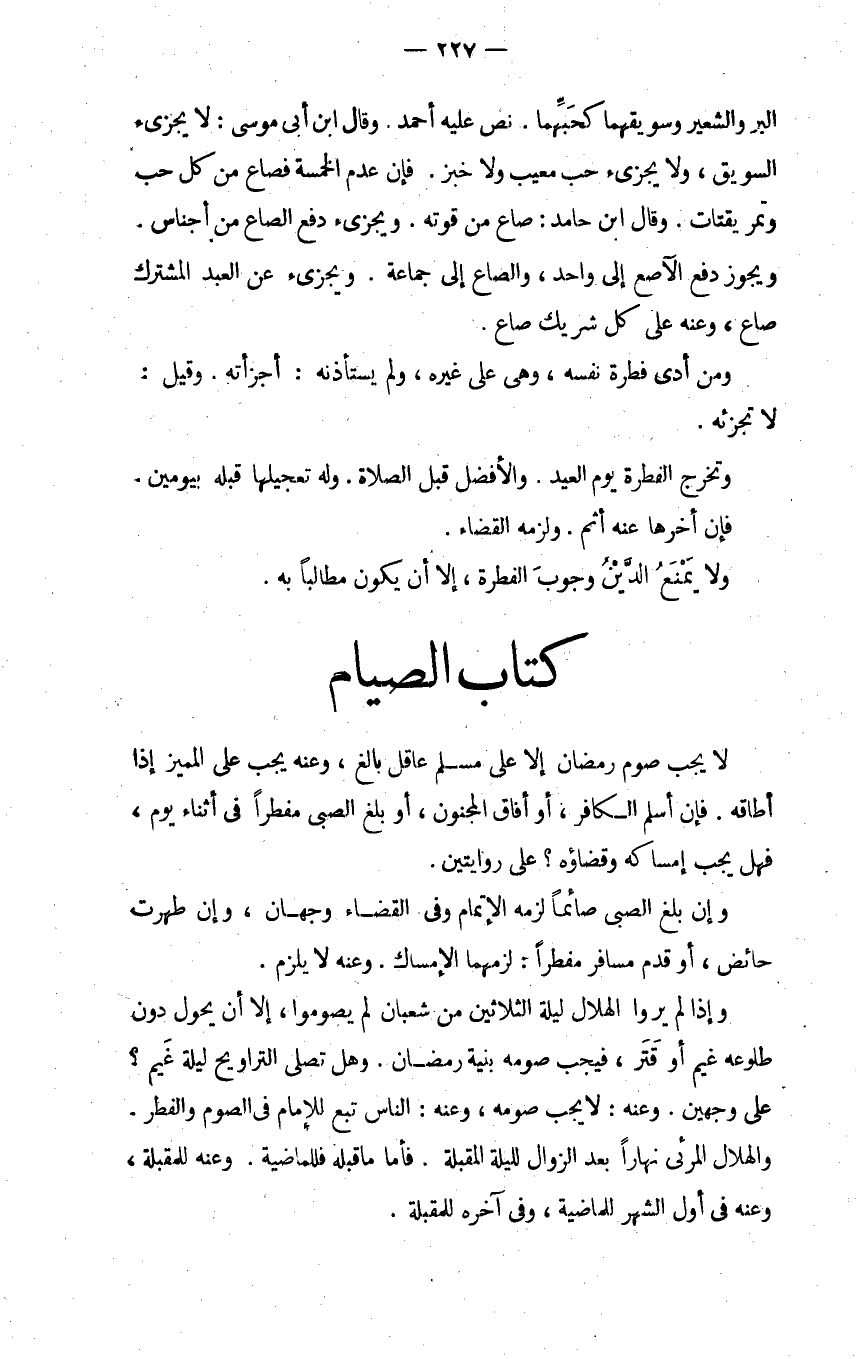 — ٢٢٧ —
البر والشعير وسويقهما كحَبِّهما . نص عليه أحمد . وقال ابن أبى موسى : لا يجزىء
السويق ، ولا يجزىء حب معيب ولا خبز . فإن عدم الخمسة فصاع من كل حب
وتمر يقتات . وقال ابن حامد : صاع من قوته . ويجزىء دفع الصاع من أجناس .
ويجوز دفع الآصع إلى واحد ، والصاع إلى جماعة . ويجزىء عن العبد المشترك
صاع ، وعنه على كل شريك صاع .
ومن أدى فطرة نفسه ، وهى على غيره ، ولم يستأذنه : أجزأته . وقيل :
لا تجزئه .
وتخرج الفطرة يوم العيد . والأفضل قبل الصلاة . وله تعجيلها قبله بيومين .
فإن أخرها عنه أثم . ولزمه القضاء .
ولا يَمْنَعُ الدَّيْنُ وجوبَ الفطرة ، إلا أن يكون مطالباً به .
كتاب الصيام
لا يجب صوم رمضان إلا على مسلم عاقل بالغ ، وعنه يجب على المميز إذا
أطاقه . فإن أسلم الكافر ، أو أفاق المجنون ، أو بلغ الصبى مفطراً فى أثناء يوم ،
فهل يجب إمساكه وقضاؤه ؟ على روايتين .
وإن بلغ الصبى صائماً لزمه الإتمام وفى القضاء وجهان ، وإن طهرت
حائض ، أو قدم مسافر مفطراً : لزمهما الإمساك . وعنه لا يلزم .
وإذا لم يروا الهلال ليلة الثلاثين من شعبان لم يصوموا ، إلا أن يحول دون
طلوعه غيم أو قَتَر ، فيجب صومه بنية رمضان . وهل تصلى التراويح ليلة غَيم ؟
على وجهين . وعنه : لايجب صومه ، وعنه : الناس تبع للإمام فى الصوم والفطر .
والهلال المرئى نهاراً بعد الزوال لليلة المقبلة . فأما ماقبله فللماضية . وعنه للمقبلة ،
وعنه فى أول الشهر للماضية ، وفى آخره للمقبلة .